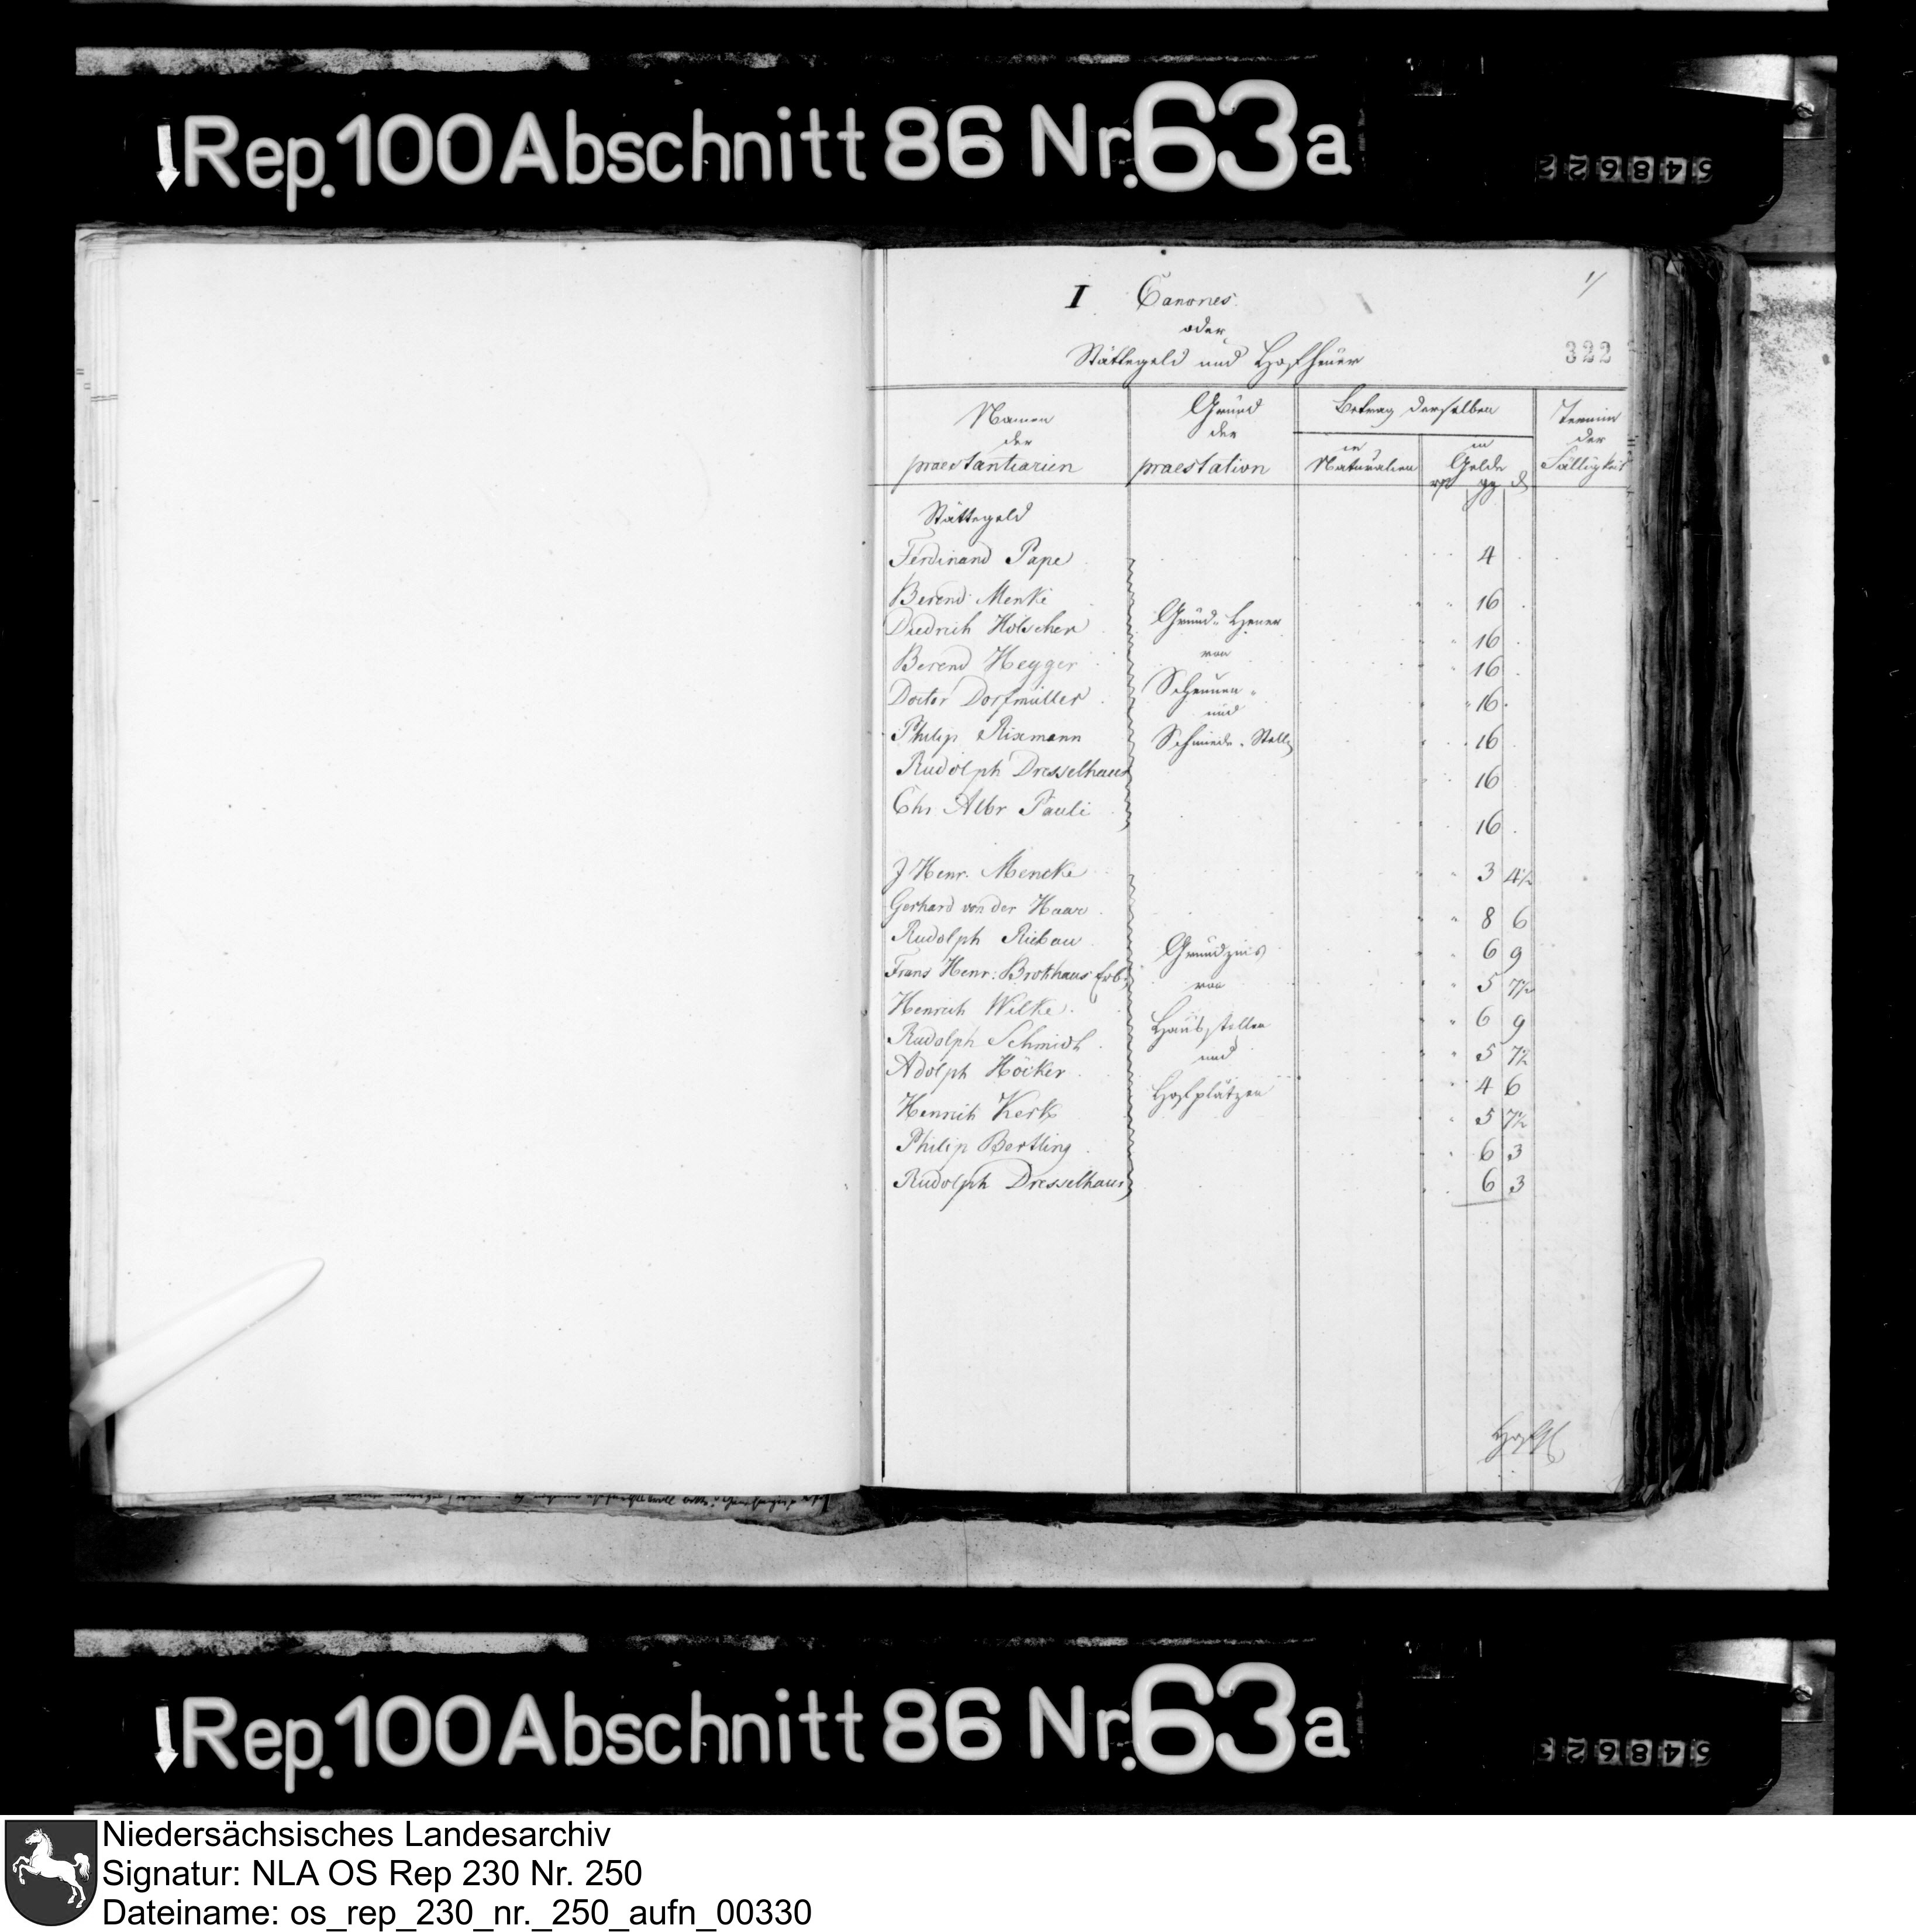 Rep. 100 Abschnitt 86 Nr. 63a
548622
1/
I Canones
oder
Stättegeld und Hofheuer
322
Namen der praestantiarien
Grund der praestation
Betrag derselben
in Naturalien
in Gelde
rt gg d
Termin der Fälligkeit
Stättegeld
Ferdinand Pape 4
Berend Menke 16
Diedrich Hölscher 16
Berend Heyger 16
Doctor Dorfmüller 16
Philip Rixmann 16
Rudolph Dresselhaus 16
Chr Albr Pauli 16
Grund-Heuer
von
Scheunen-
und
Schmiede-Stelle
J Henr. Mencke 3 4½
Gerhard von der Haar 8 6
Rudolph Riebau 6 9
Frans Henr: Brokhaus Erb: 5 7½
Henrich Wilke 6 9
Rudolph Schmidt 5 7½
Adolph Höcker 4 6
Henrich Kerk 5 7½
Philip Bertling 6 3
Rudolph Dresselhaus 6 3
Grundzins
von
Hausstellen
und
Hofplätzen
Rep. 100 Abschnitt 86 Nr. 63a
548623
Niedersächsisches Landesarchiv
Signatur: NLA OS Rep 230 Nr. 250
Dateiname: os_rep_230_nr._250_aufn_00330